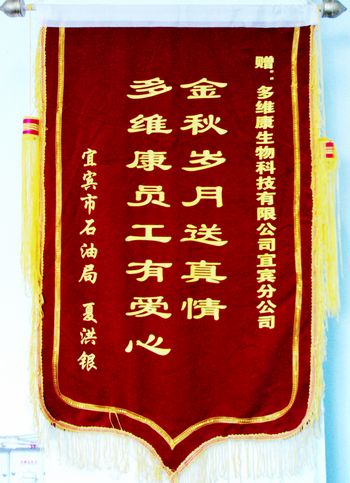 赠：多维康生物科技有限公司宜宾分公司
金秋岁月送真情
多维康员工有爱心
宜宾市石油局 夏洪银